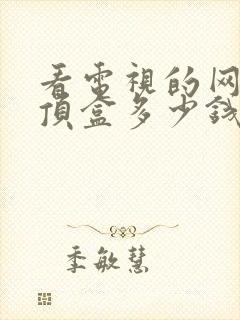 看電視的网
頂盒多少錢
季敏慧